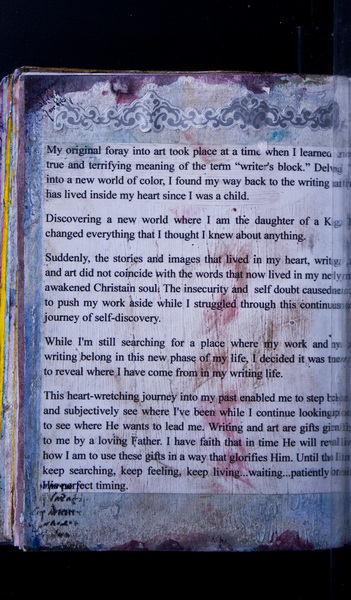 My original foray into art took place at a time when I learned
true and terrifying meaning of the term "writer's block."
into a new world of color, I found my way back to the writing
has lived inside my heart since I was a child.
Discovering a new world where I am the daughter of a
changed everything that I thought I knew about anything.
Suddenly, the stories and images that lived in my heart,
and art did not coincide with the words that now lived in my
awakened Christain soul. The insecurity and self doubt caused
to push my work aside while I struggled through this
journey of self-discovery.
While I'm still searching for a place where my work and
writing belong in this new phase of my life, I decided it was
to reveal where I have come from in my writing life.
This heart-wretching journey into my past enabled me to step
and subjectively see where I've been while I continue looking
to see where He wants to lead me. Writing and art are gifts
to me by a loving Father. I have faith that in time He will
how I am to use these gifts in a way that glorifies Him. Until
keep searching, keep feeling, keep living...waiting...patiently
His perfect timing.